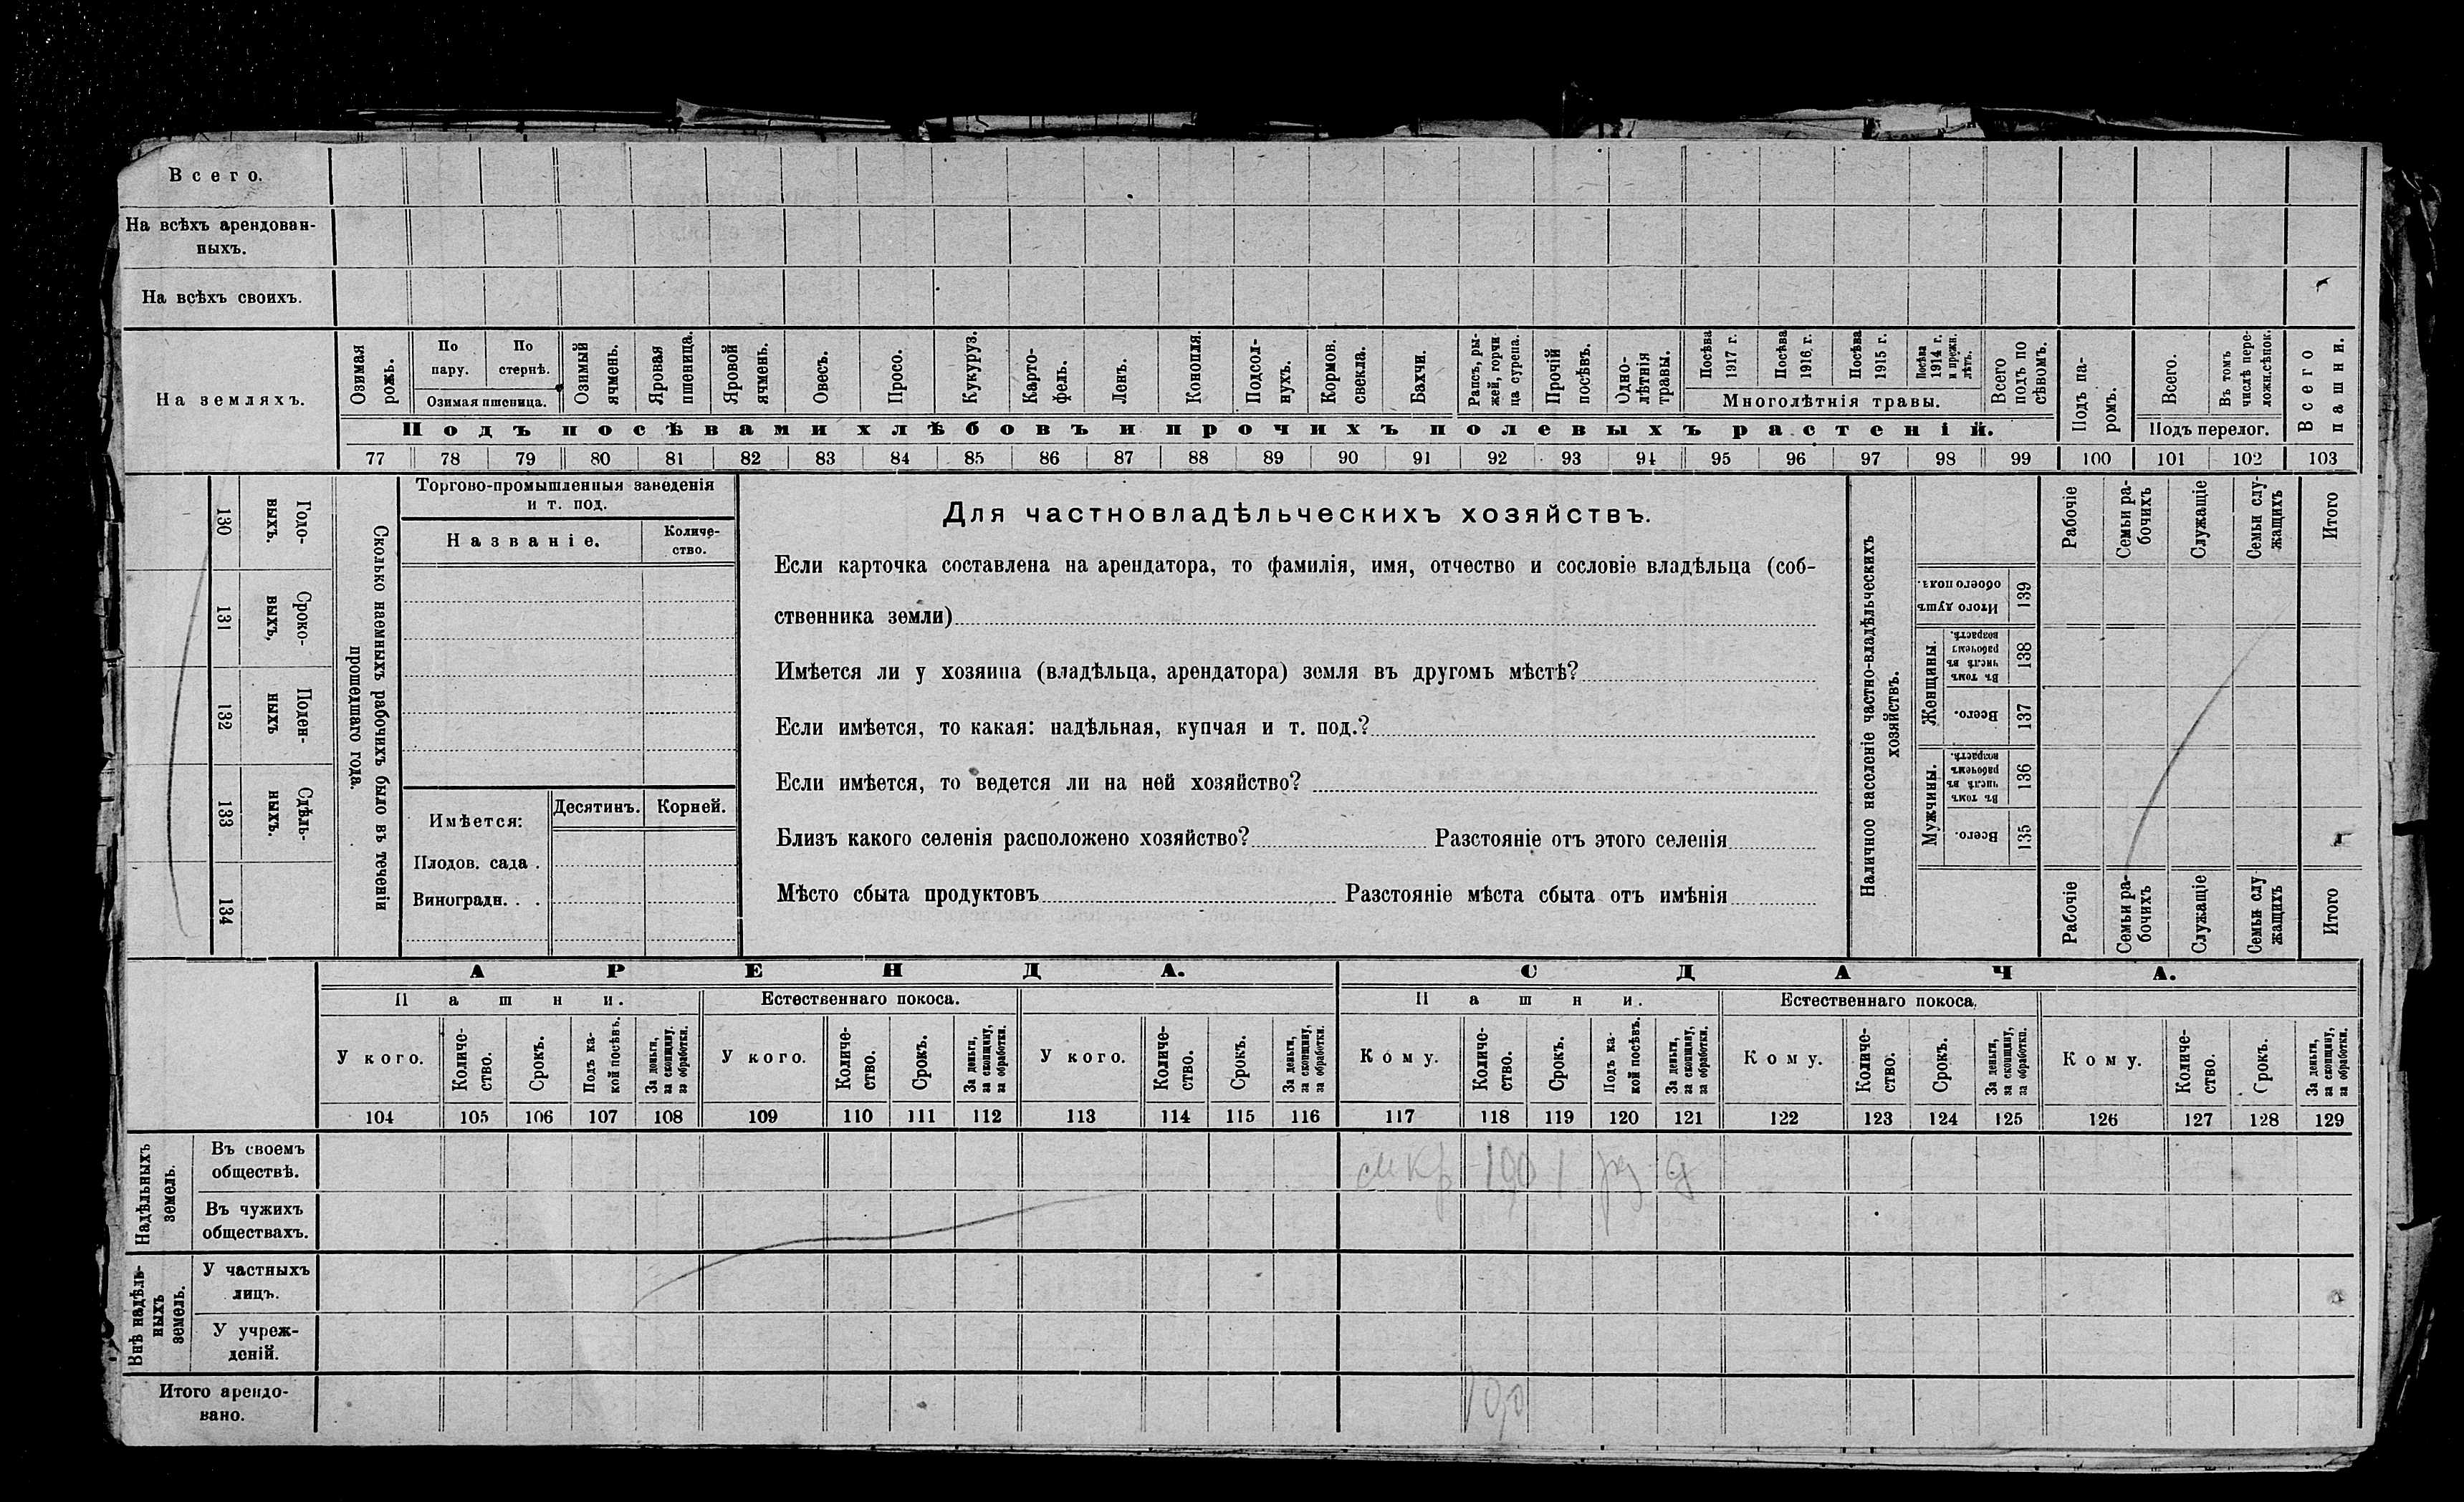 Всего.
На всѣхъ арендован-
ныхъ.
На всѣхъ своихъ.
На земляхъ.
Озимая рожь.
По пару.
По стернѣ.
Озимая пшеница.
Озимый ячмень.
Яровая пшеница.
Яровой ячмень.
Овесъ.
Просо.
Кукуруз.
Карто-
фель.
Ленъ.
Конопля.
Подсол-
нухъ.
Кормов. свекла.
Бахчи.
Рапсъ, ры-
жей, горчи-
ца сурепа.
Прочій посѣвъ.
Одно-
лѣтнія
травы.
Посѣва 1917 г.
Посѣва 1916 г.
Посѣва 1915 г.
Посѣва 1914 г. и прежн. лѣтъ.
Многолѣтнія травы.
Всего подъ по сѣвомъ.
Подъ посѣвами хлѣбовъ и прочихъ полевыхъ растеній.
Подъ па-
ромъ.
Всего.
Въ томъ числѣ пере-
ложн.сѣнок.
Подъ перелог.
Всего пашни.
77 78 79 80 81 82 83 84 85 86 87 88 89 90 91 92 93 94 95 96 97 98 99 100 101 102 103
130 Годо-
выхъ.
131 Сроко-
выхъ,
132 Поден-
ныхъ
133 Сдѣль-
ныхъ.
134
Сколько наемныхъ рабочихъ было въ теченіи
прошедшаго года.
Торгово-промышленныя заведенія
и т. под.
Названіе.
Количе-
ство.
Имѣется:
Десятинъ.
Корней.
Плодов. сада .
Виноградн. . .
Для частновладѣльческихъ хозяйствъ.
Если карточка составлена на арендатора, то фамилія, имя, отчество и сословіе владѣльца (соб-
ственника земли)
Имѣется ли у хозяина (владѣльца, арендатора) земля въ другомъ мѣстѣ?
Если имѣется, то какая: надѣльная, купчая и т. под.?
Если имѣется, то ведется ли на ней хозяйство?
Близъ какого селенія расположено хозяйство? Разстояніе отъ этого селенія
Мѣсто сбыта продуктовъ Разстояніе мѣста сбыта отъ имѣнія
Наличное населеніе частно-владѣльческихъ
хозяйствъ.
Рабочіе
Семьи ра-
бочихъ
Служащіе
Семьи слу-
жащихъ
Итого
Итого душъ обоего пола. 139
Женщины.
Въ томъ числѣ въ рабочемъ возрастѣ. 138
Всего. 137
Мужчины.
Въ томъ числѣ въ рабочемъ возрастѣ. 136
Всего. 135
Рабочіе
Семьи ра-
бочихъ
Служащіе
Семьи слу
жащихъ
Итого
АРЕНДА.
СДАЧА.
Пашни.
Естественнаго покоса.
Пашни.
Естественнаго покоса.
У кого.
Количе-
ство.
Срокъ.
Подъ ка-
кой посѣвъ.
За деньги, за скопщину, за обработки.
У кого.
Количе-
ство.
Срокъ.
За деньги, за скопщину, за обработки.
У кого.
Количе-
ство.
Срокъ.
За деньги, за скопщину, за обработки.
Кому.
Количе-
ство.
Срокъ.
Подъ ка-
кой посѣвъ.
За деньги, за скопщину, за обработки.
Кому.
Количе-
ство.
Срокъ.
За деньги, за скопщину, за обработки.
Кому.
Количе-
ство.
Срокъ.
За деньги, за скопщину, за обработки.
104 105 106 107 108 109 110 111 112 113 114 115 116 117 118 119 120 121 122 123 124 125 126 127 128 129
Надѣльныхъ земель.
Въ своемъ
обществѣ.
Въ чужихъ
обществахъ.
Внѣ надѣль-
ныхъ
земель.
У частныхъ
лицъ.
У учреж-
деній.
Итого арендо-
вано.